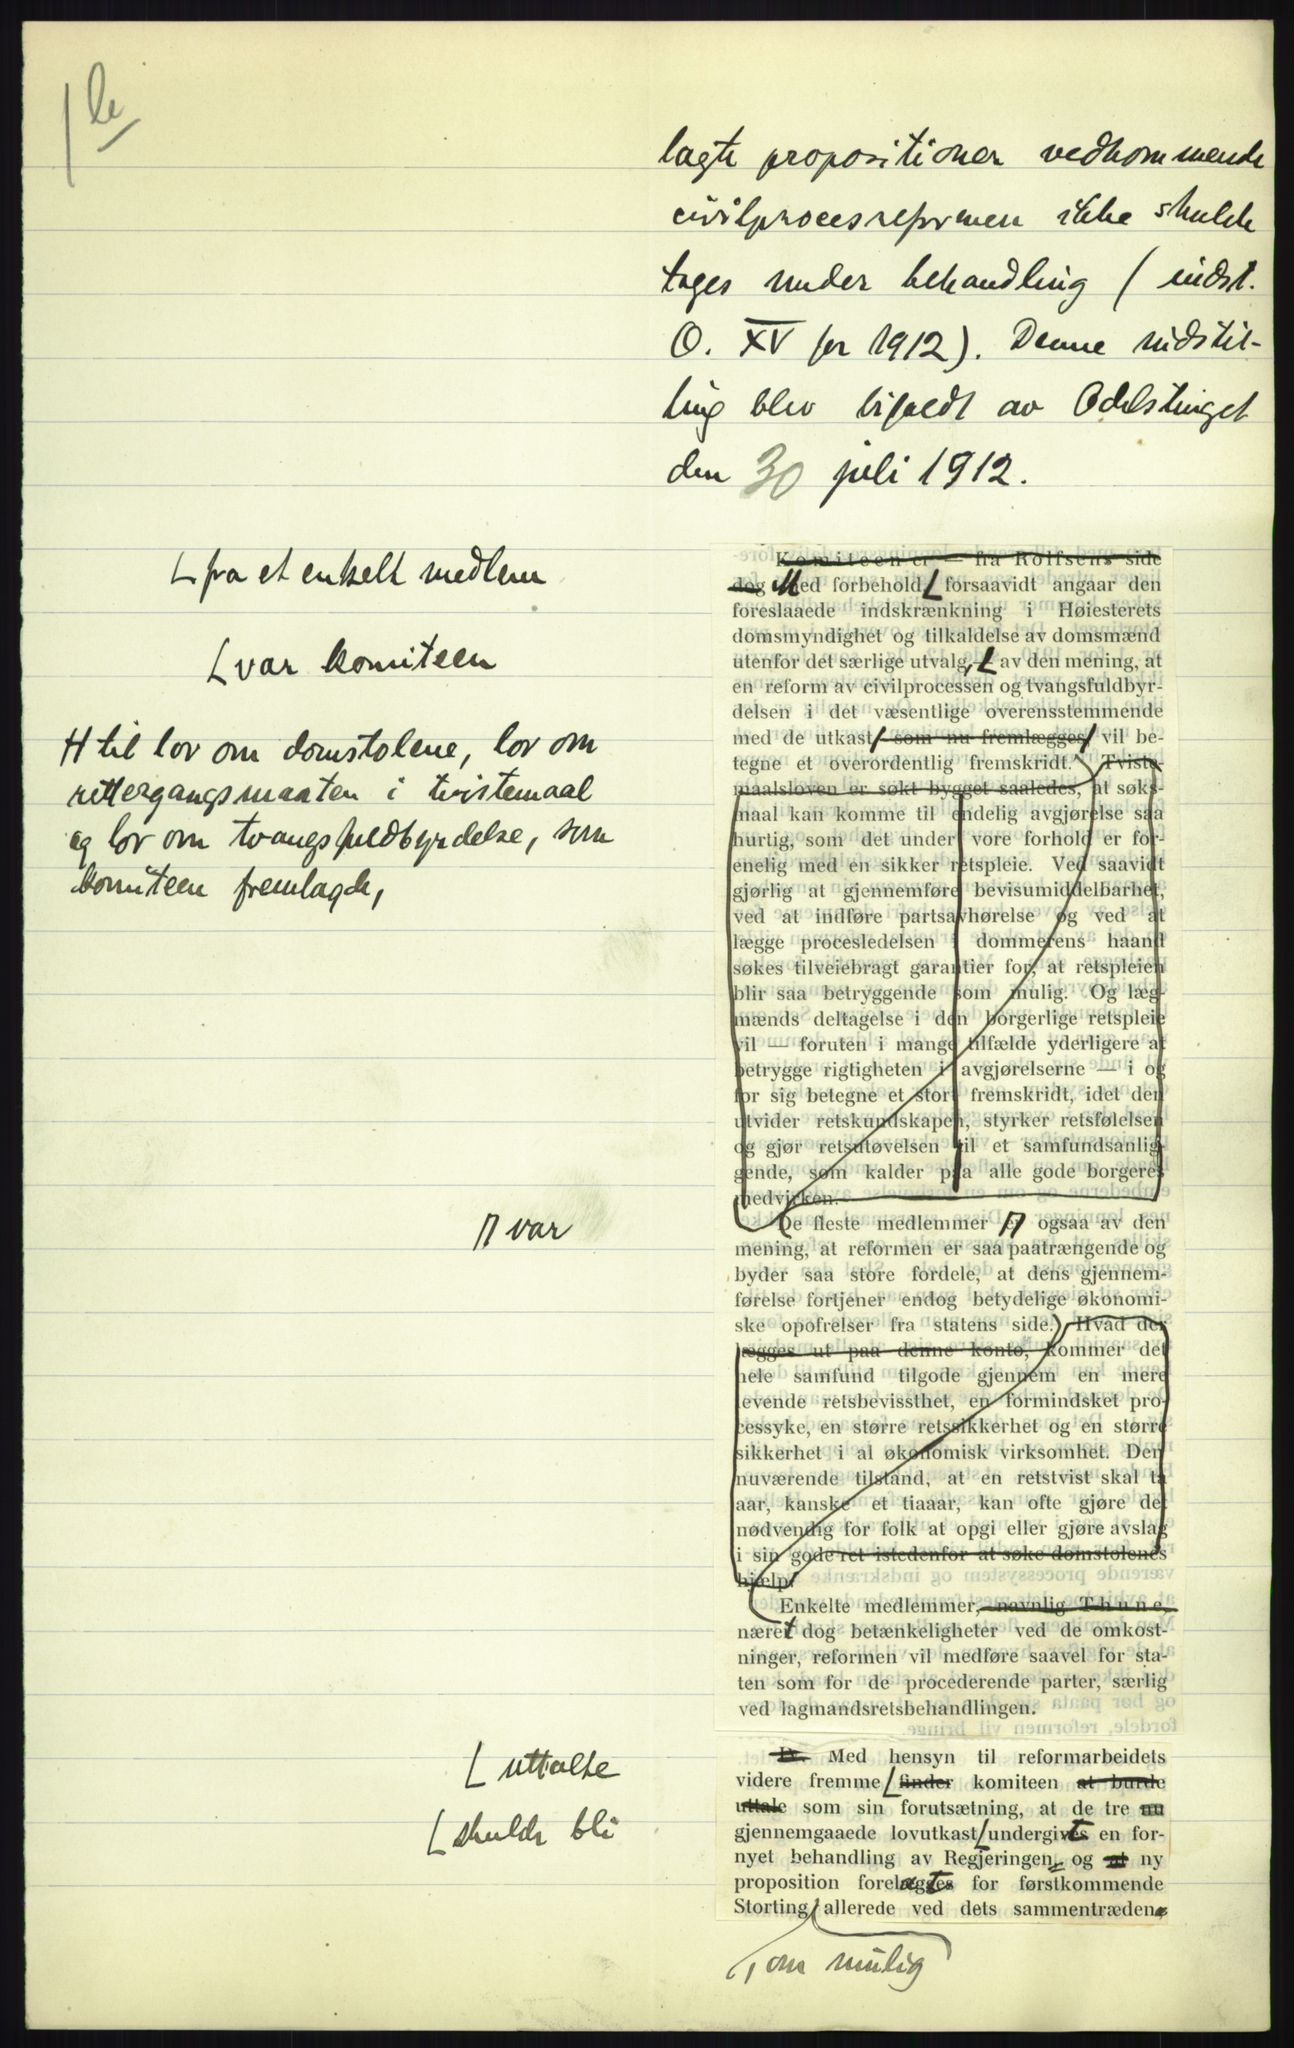 1 le
lagte propositioner vedkommende
civilprocesreformen ikke skulde
tages under behandling (indst.
O. XV for 1912). Denne indstil-
ling blev bifaldt av Odelstinget
den 30 juli 1912.
fra et enkelt medlem
var komiteen
H til lov om domstolene, lov om
rettergangsmaaten i tvistemaal
og lov om tvangsfuldbyrdelse, som
komiteen fremlagde,
Komiteen er — fra Rolfsens side
dog Med forbehold forsaavidt angaar den
foreslaaede indskrænkning i Høiesterets
domsmyndighet og tilkaldelse av domsmænd
utenfor det særlige utvalg, — av den mening, at
en reform av civilprocessen og tvangsfuldbyr-
delsen i det væsentlige overensstemmende
med de utkast, som nu fremlægges, vil be-
tegne et overordentlig fremskridt. Tviste-
maalsloven er søkt bygget saaledes, at søks-
maal kan komme til endelig avgjørelse saa
hurtig, som det under vore forhold er for-
enelig med en sikker retspleie. Ved saavidt
gjørlig at gjennemføre bevisumiddelbarhet,
ved at indføre partsavhørelse og ved at
lægge procesledelsen i dommerens haand
søkes tilveiebragt garantier for, at retspleien
blir saa betryggende som mulig. Og læg-
mænds deltagelse i den borgerlige retspleie
vil — foruten i mange tilfælde yderligere at
betrygge rigtigheten i avgjørelserne — i og
for sig betegne et stort fremskridt, idet den
utvider retskundskapen, styrker retsfølelsen
og gjør retsutøvelsen til et samfundsanlig-
gende, som kalder paa alle gode borgeres
medvirken.
var
De fleste medlemmer er ogsaa av den
mening, at reformen er saa paatrængende og
byder saa store fordele, at dens gjennem-
førelse fortjener endog betydelige økonomi-
ske opofrelser fra statens side. Hvad der
lægges ut paa denne konto, kommer det
hele samfund tilgode gjennem en mere
levende retsbevissthet, en formindsket pro-
cessyke, en større retssikkerhet og en større
sikkerhet i al økonomisk virksomhet. Den
nuværende tilstand, at en retstvist skal ta
aar, kanske et tiaaar, kan ofte gjøre det
nødvendig for folk at opgi eller gjøre avslag
i sin gode ret istedenfor at søke domstolenes
hjælp.
Enkelte medlemmer, navnlig Thune,
næret dog betænkeligheter ved de omkost-
ninger, reformen vil medføre saavel for sta-
ten som for de procederende parter, særlig
ved lagmandsretsbehandlingen.
uttalte
skulde bli
Med hensyn til reformarbeidets
videre fremme finder komiteen at burde
uttale som sin forutsætning, at de tre nu
gjennemgaaede lovutkast undergivet en for-
nyet behandling av Regjeringen og at ny
proposition forelagt for førstkommende
Storting allerede ved dets sammentræden
, om mulig